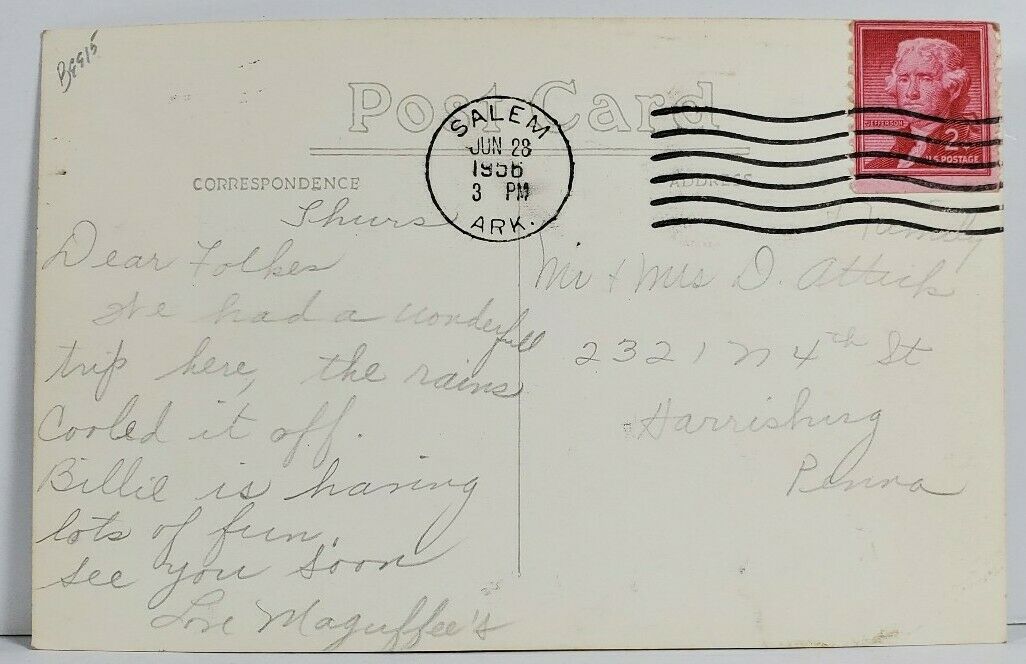 BEE15
Post Card
SALEM
JUN 28
1956
3 PM
ARK.
JEFFERSON
2¢
U.S. POSTAGE
CORRESPONDENCE
ADDRESS
Thurs
Dear Folkes
We had a wonderfull
trip here, the rains
Cooled it off.
Billie is having
lots of fun.
see you soon
Love Maguffee's
& Family
Mr & Mrs D. Attick
2321 N 4th St
Harrisburg
Penna